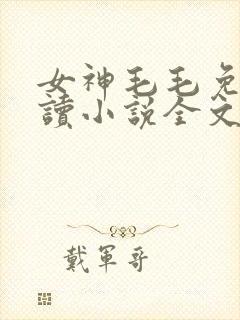 女神毛毛免
讀小說全文
戴軍哥